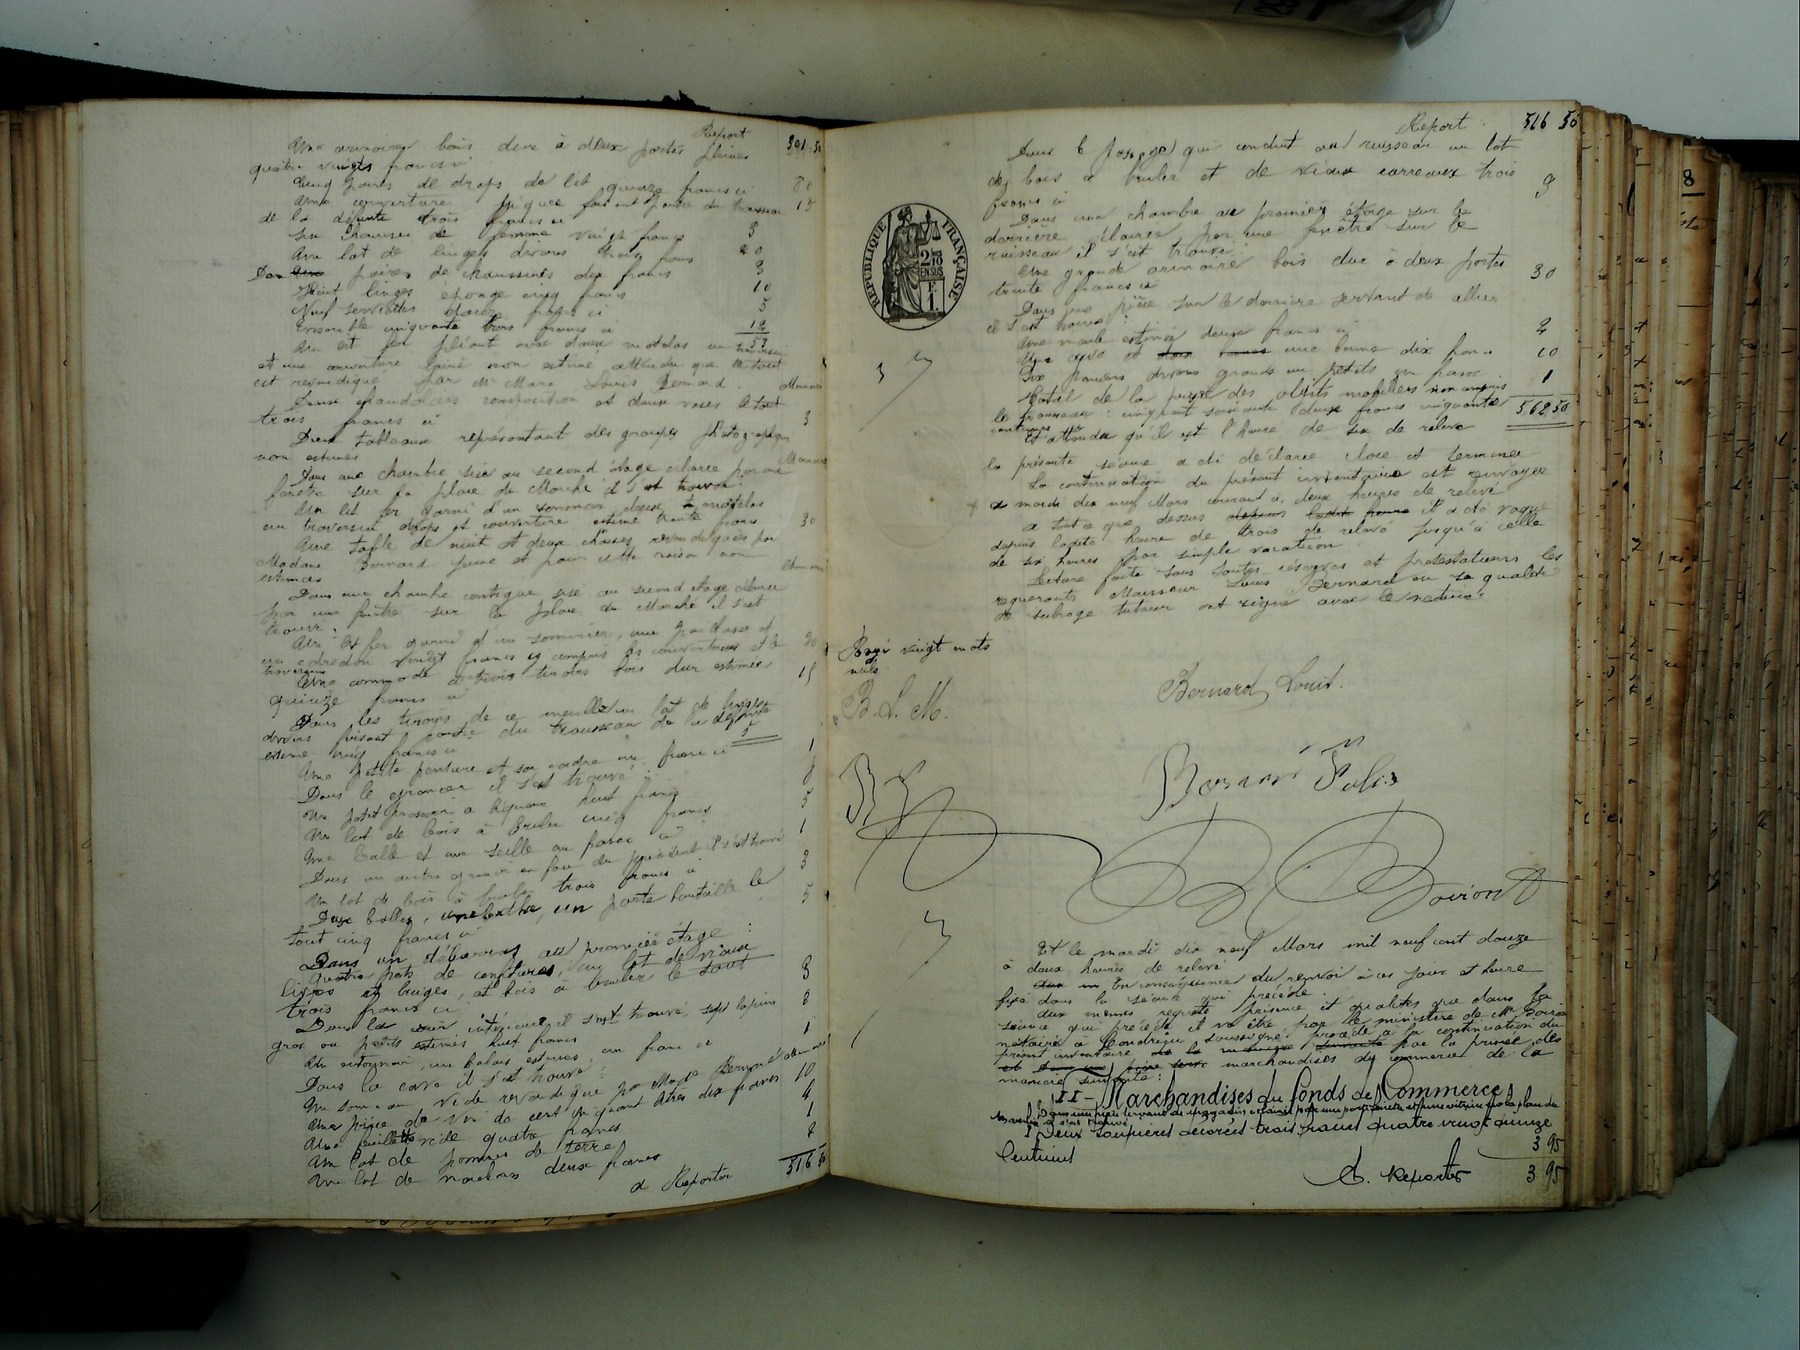 Report 301 50
Une armoire bois dur à deux portes pleines
quatre vingts francs ci 80
Cinq paires de draps de lit quinze francs ci 15
Une couverture piquée faisant partie du trousseau
de la défunte trois francs ci 3
Six chemises de femme vingt francs 20
Un lot de linges divers trois francs 3
Dix paires de chaussures dix francs 10
Huit linges éponge cinq francs 5
Neuf serviettes francs ci 12
Ensemble cinquante trois francs ci 53
Un lit fer pliant avec deux matelas un traversin
et une couverture laine non estimé attendu que le tout
est revendiqué par Mr Marc Louis Bernard. Mémoire
Deux chandeliers composition et deux vases le tout
trois francs ci 3
Deux tableaux représentant des groupes photographiques
non estimés Mémoire
Dans une chambre sise au second étage éclairée par une
fenêtre sur la place du Marché il s'est trouvé :
Un lit fer garni d'un sommier deux matelas
un traversin draps et couverture estimé trente francs 30
Une table de nuit et deux chaises revendiquées par
Madame Bernard jeune et pour cette raison non
estimées Mémoire
Dans une chambre contigue sise au second étage éclairée
par une fenêtre sur la place du Marché il s'est
trouvé :
Un lit fer garni d'un sommier, une paillasse et
un edredon vingt francs y compris les couvertures et le 20
traversin
Une commode à trois tiroirs bois dur estimée 15
quinze francs ci
Dans les tiroirs de ce meuble un lot de linges
divers faisant partie du trousseau de la défunte
estimé cinq francs ci 5
Une petite peinture et son cadre un franc ci 1
Dans le grenier il s'est trouvé :
Un petit pressoir à liqueur huit francs 8
Un lot de bois à bruler cinq francs 5
Une balle et une seille un franc ci 1
Dans un autre grenier en face du précédent il s'est trouvé
Un lot de bois à bruler trois francs ci 3
Deux balles, un porte bouteille le
tout cinq francs ci 5
Dans un débarras au premier étage :
Quatre pots de confitures, un lot de vieux
livres et linges, et bois à bruler le tout
trois francs ci 3
Dans la cour intérieure il s'est trouvé, sept lapins
gros ou petits estimés huit francs 8
Un entonnoir, un balais estimés, un franc ci 1
Dans la cave il s'est trouvé :
Un tonneau vide revendiqué par Mayse Bernard Mémoire
Une pièce de vin de cent cinquante litres dix francs 10
Une feuillette vide quatre francs 4
Un lot de pommes de terre 1
Un lot de deux francs 2
A Reporter 516 50
Report : 516 50
Dans le passage qui conduit au ruisseau un lot
de bois à bruler et de vieux carreaux trois
francs ci 3
Dans une chambre au premier étage sur le
derrière éclairée par une fenêtre sur le
ruisseau il s'est trouvé :
Une grande armoire bois dur à deux portes
trente francs ci 30
Dans une pièce sur le derrière servant de
il s'est trouvé :
Une estimée deux francs ci 2
Une cuve et une benne dix francs 10
Six paniers divers grands ou petits un franc 1
Total de la prisée des objets mobiliers non compris
le trousseau : cinq cent soixante deux francs cinquante 562 50
centimes
Et attendu qu'il est l'heure de six de relevé
la présente séance a été déclarée close et terminée
La continuation du présent inventaire est renvoyée
à mardi dix neuf Mars courant à deux heures de relevé
A tout ce que dessus il a été vaqué
depuis ladite heure de trois de relevé jusqu'à celle
de six heures par simple vacation
Lecture faite sous toutes réserves et protestations les
requérants Monsieur Louis Bernard en sa qualité
de subrogé tuteur ont signé avec le notaire.
Rayé vingt mots
nuls
B. L. M.
Bernard Louis.
Boiron
Et le mardi dix neuf Mars mil neuf cent douze
à deux heures de relevé
En conséquence du renvoi à ces jour et heure
fixé dans la séance qui précède.
Aux mêmes requête présence et qualités que dans la
séance qui précède il va être, par le ministère de Me Boiron
notaire à Condrieu soussigné, procédé à la continuation du
présent inventaire par la prisée des
marchandises du commerce de la
manière suivante :
II - Marchandises du fonds de Commerce
Dans une pièce servant de magasin éclairée par une porte fenêtre et une vitrine sur la place du
Marché il s'est trouvé
1 Deux soupières décorées trois francs quatre vingt quinze
Centimes 3 95
A. Reporter 3 95
RÉPUBLIQUE FRANÇAISE